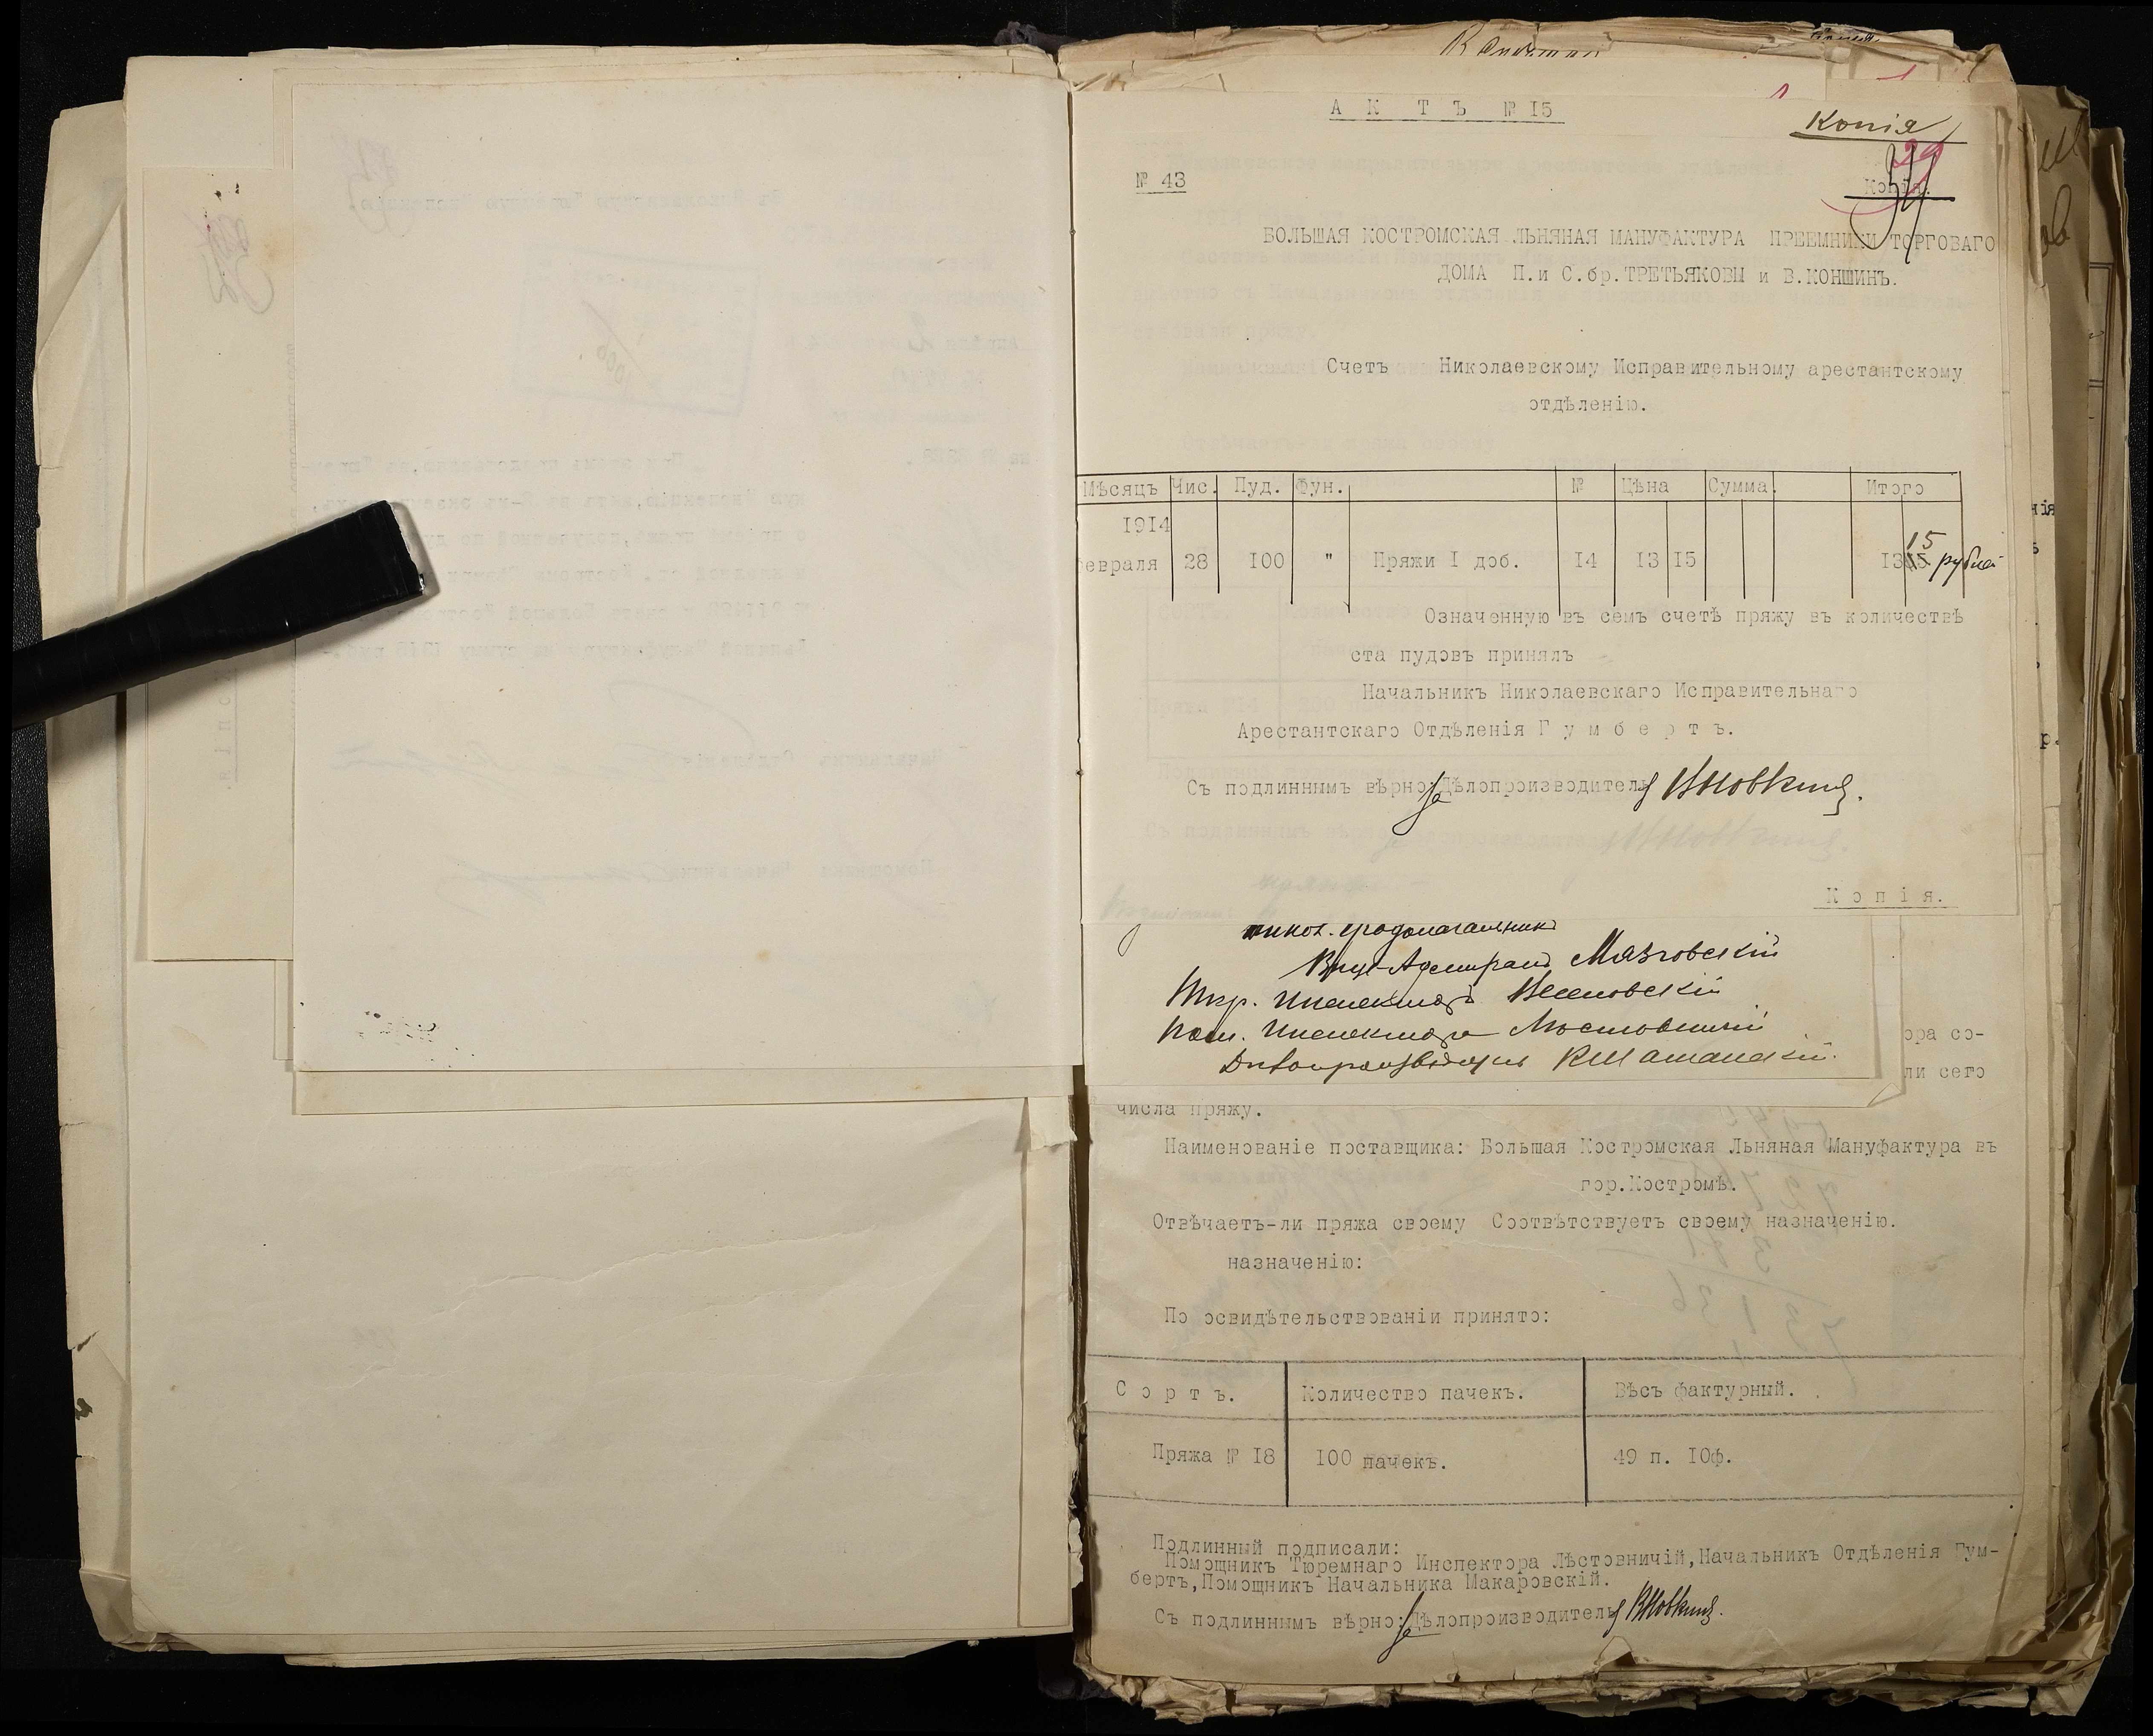 А К Т Ъ № 15
Копія
№ 43
Копія.
БОЛЬШАЯ КОСТРОМСКАЯ ЛЬНЯНАЯ МАНУФАКТУРА ПРЕЕМНИКИ ТОРГОВАГО
ДОМА П.и С.бр.ТРЕТЬЯКОВЫ и В.КОНШИНЪ.
Счетъ Николаевскому Исправительному арестантскому
отдѣленію.
Мѣсяцъ Чис. Пуд. Фун. № Цѣна Сумма. Итого
1914
февраля 28 100 " Пряжи I доб. 14 13 15 1315 рублей
Означенную въ семъ счетѣ пряжу въ количествѣ
ста пудовъ принялъ
Начальникъ Николаевскаго Исправительнаго
Арестантскаго Отдѣленія Г у м б е р т ъ.
Съ подлиннымъ вѣрно: Дѣлопроизводитель
К о п і я.
градоначальникъ
Вице-Адмиралъ Мязговскій
Тюр. Инспекторъ
Пом. Инспектора Лѣстовничій
Дѣлопроизводитель
ора со-
ли сего
числа пряжу.
Наименованіе поставщика: Большая Костромская Льняная Мануфактура въ
гор.Костромѣ.
Отвѣчаетъ-ли пряжа своему Соотвѣтствуетъ своему назначенію.
назначенію:
По освидѣтельствованіи принято:
С о р т ъ. Количество пачекъ. Вѣсъ фактурный.
Пряжа № 18 100 пачекъ. 49 п. 10ф.
Подлинный подписали:
Помощникъ Тюремнаго Инспектора Лѣстовничій,Начальникъ Отдѣленія Гум-
бертъ,Помощникъ Начальника Макаровскій.
Съ подлиннымъ вѣрно: Дѣлопроизводитель